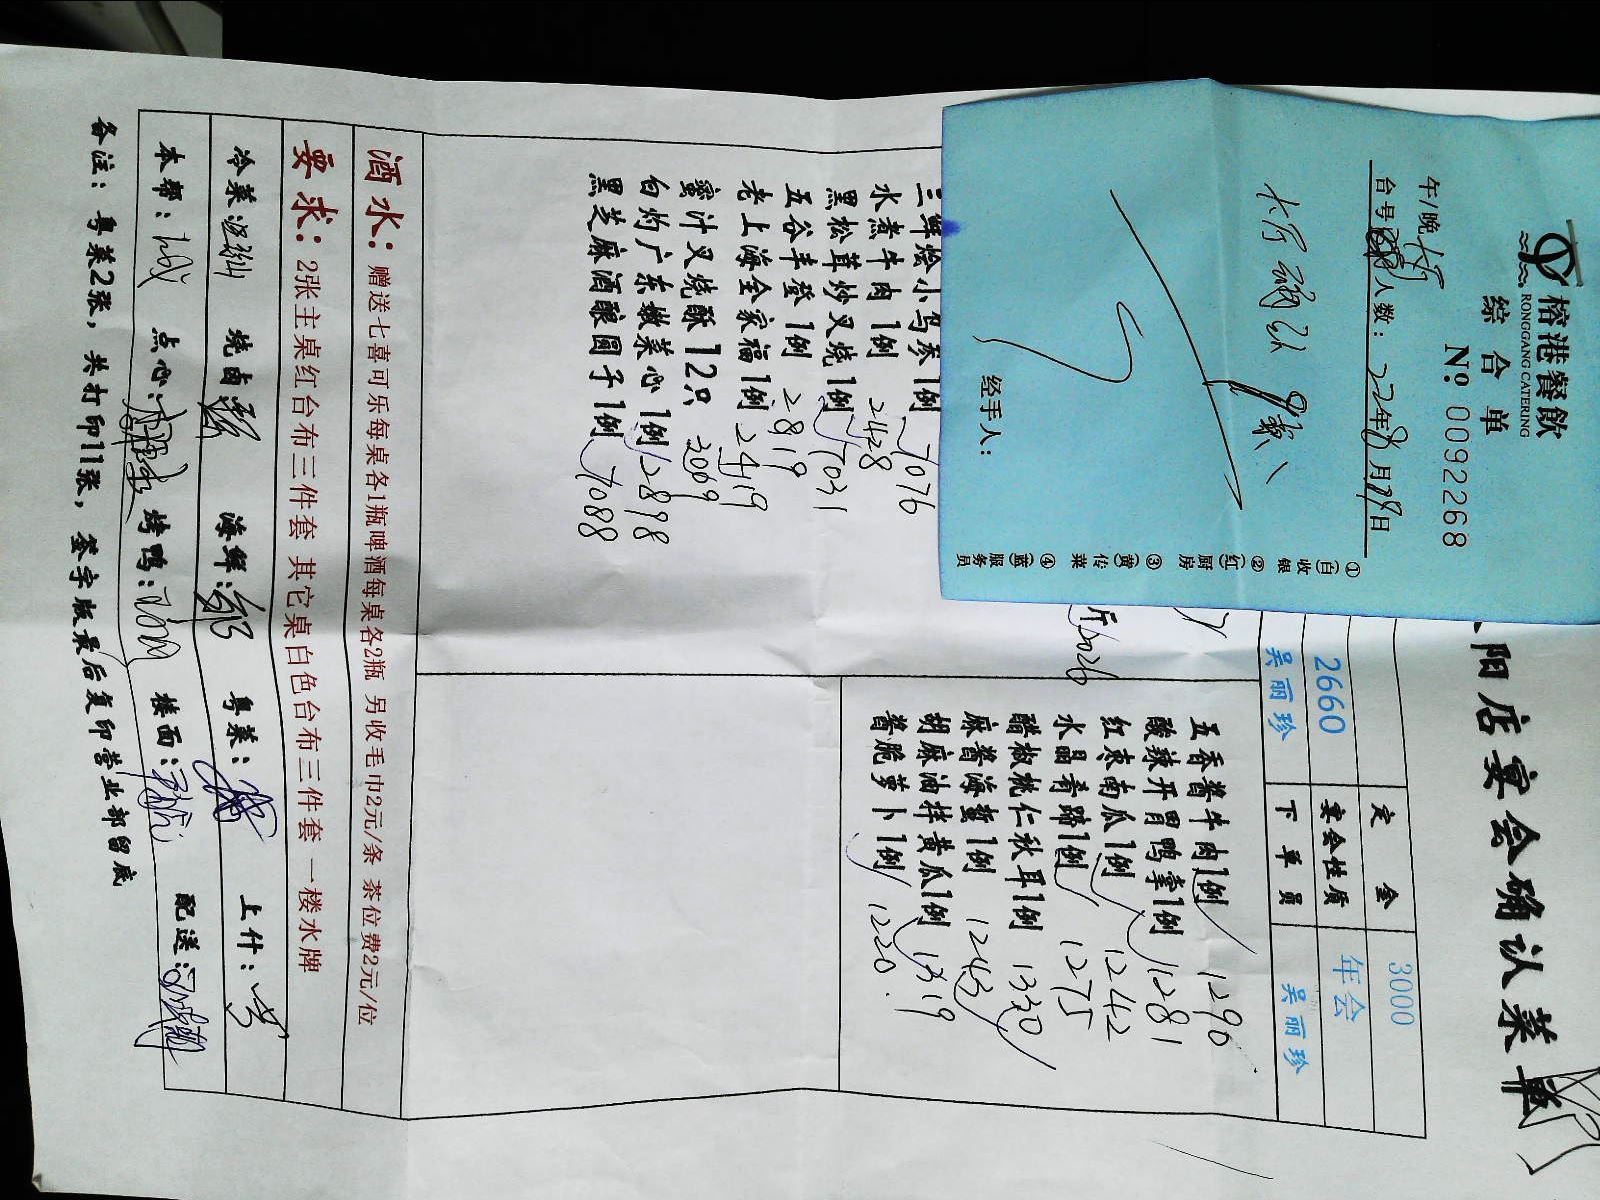 榕港餐飲
RONGGANG CATERING
综合单
No 0092268
午/晚
台号 人数: 22年8月29日
经手人:
①(白)收银
②(红)厨房
③(黄)传菜
④(蓝)服务员
阳店宴会确认菜单
定金 3000
2660 宴会性质 年会
吴丽珍 下单员 吴丽珍
斤 3026
三鲜烩小乌参1例 7076
水煮牛肉1例 2428
黑松茸炒叉烧1例 7031
五谷丰登1例 2819
老上海全家福1例 2419
蜜汁叉烧酥12只 3069
白灼广东嫩菜心1例 2898
黑芝麻酒酿圆子1例 7088
五香酱牛肉1例 1290
酸辣开胃鸭掌1例 1281
红枣南瓜1例 1242
水晶肴蹄1例 1275
醋椒桃仁秋耳1例 1330
麻酱海蜇1例 1243
胡麻油拌黄瓜1例 1319
酱脆萝卜1例 1220
酒水: 赠送七喜可乐每桌各1瓶啤酒每桌各2瓶 另收毛巾2元/条 茶位费2元/位
要求: 2张主桌红台布三件套 其它桌白色台布三件套 一楼水牌
冷菜: 烧卤: 海鲜: 粤菜: 上什:
本帮: 点心: 烤鸭: 楼面: 配送:
备注: 粤菜2张, 共打印11张, 签字版最后复印营业部留底